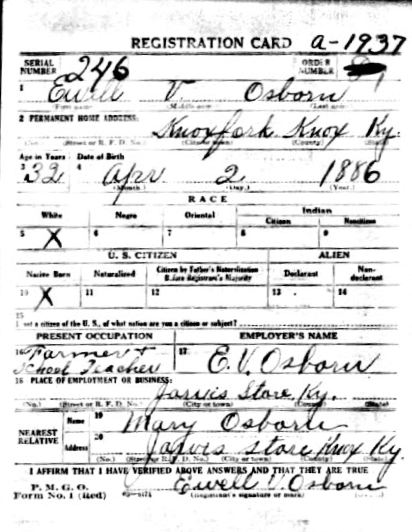 REGISTRATION CARD a-1937
SERIAL NUMBER 246 ORDER NUMBER
1 Ewell V. Osborn
(First name) (Middle name) (Last name)
2 PERMANENT HOME ADDRESS:
Knoxfork Knox Ky.
(No.) (Street or R. F. D. No.) (City or town) (County) (State)
Age in Years Date of Birth
3 32 4 Apr 2 1886
(Month.) (Day.) (Year.)
RACE
White Negro Oriental Indian
Citizen Noncitizen
5 X 6 7 8 9
U. S. CITIZEN ALIEN
Native Born Naturalized Citizen by Father's Naturalization Before Registrant's Majority Declarant Non-declarant
10 X 11 12 13 14
15
If not a citizen of the U. S., of what nation are you a citizen or subject?
PRESENT OCCUPATION EMPLOYER'S NAME
16 Farmer + 17 E. V. Osborn
School Teacher
18 PLACE OF EMPLOYMENT OR BUSINESS:
Jarvis Store, Ky.
(No.) (Street or R. F. D. No.) (City or town) (County) (State)
NEAREST RELATIVE Name 19 Mary Osborn
Address 20 Jarvis Store Knox Ky.
(No.) (Street or R. F. D. No.) (City or town) (County) (State)
I AFFIRM THAT I HAVE VERIFIED ABOVE ANSWERS AND THAT THEY ARE TRUE
P. M. G. O.
Form No. 1 (Red) Ewell V. Osborn
(Registrant's signature or mark)